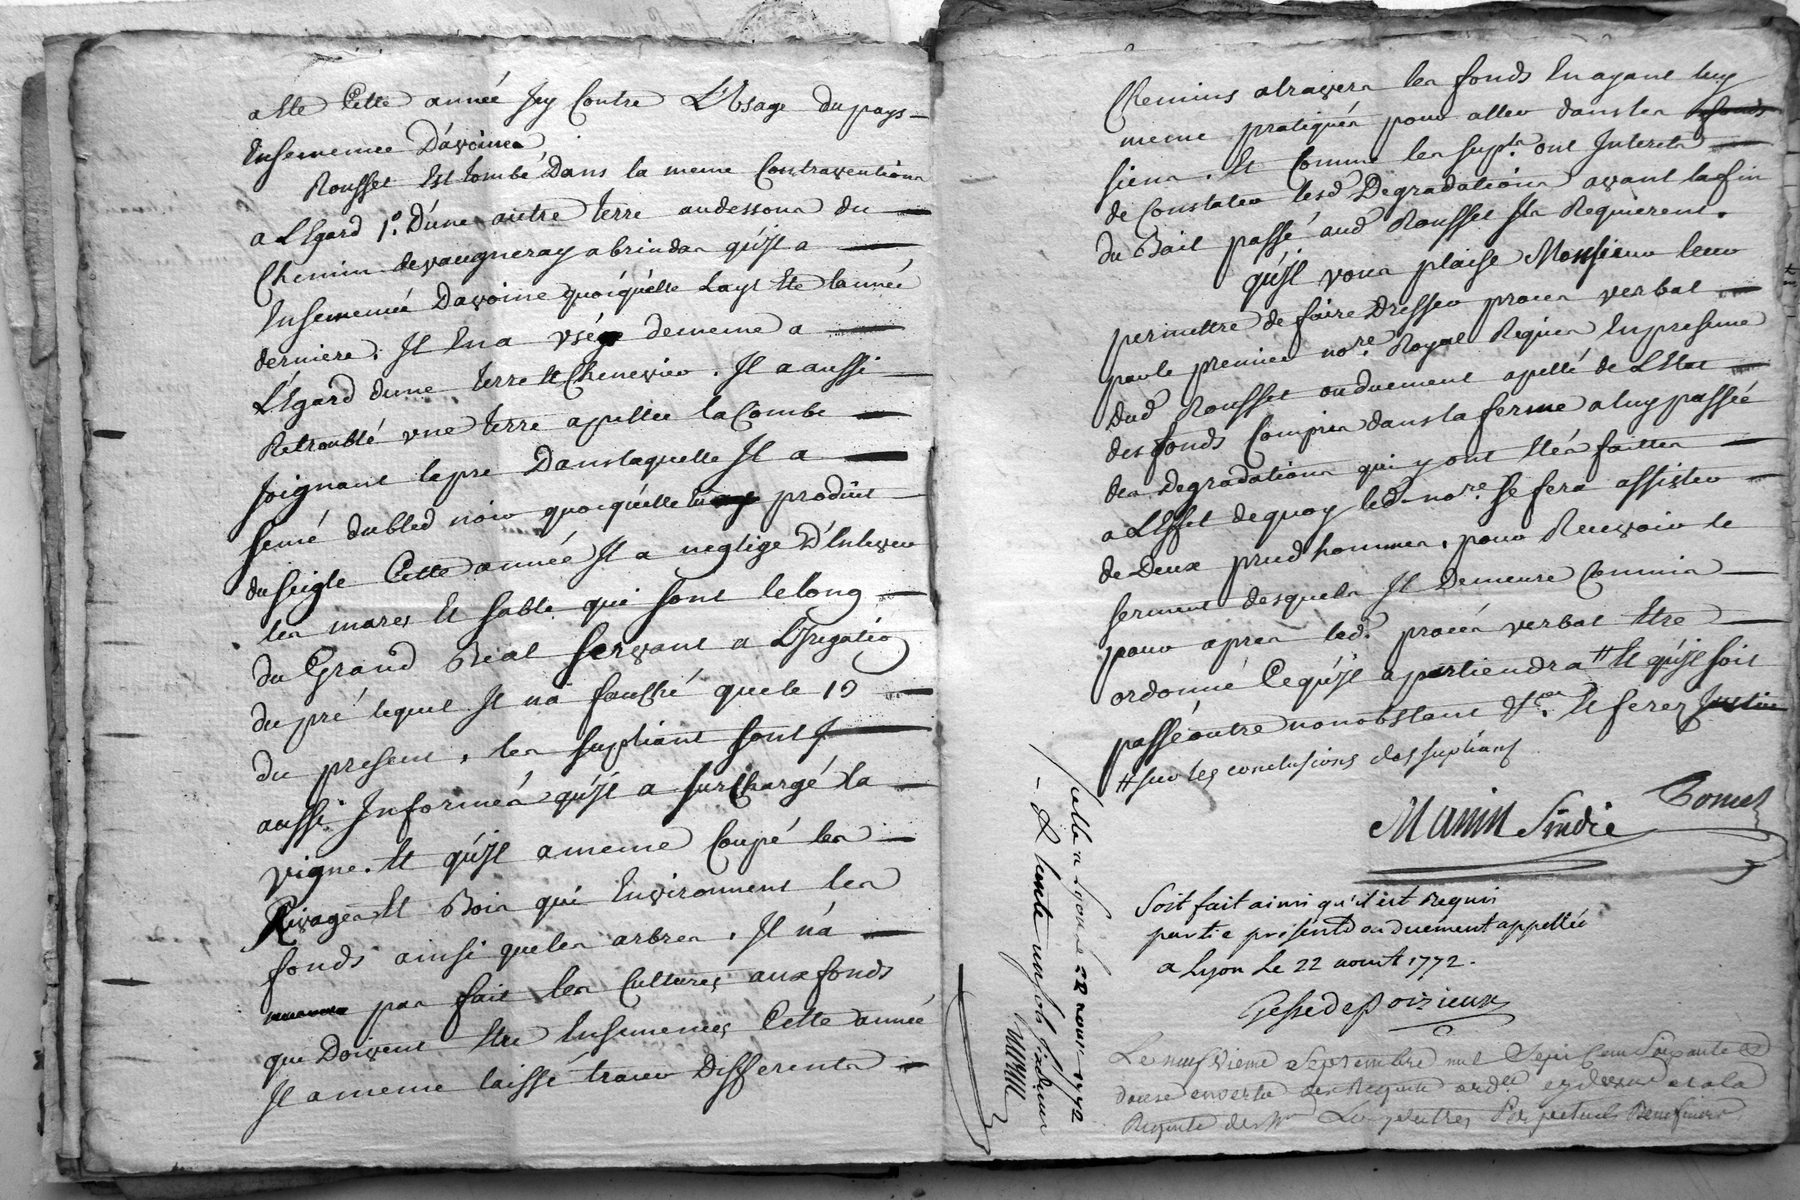 a Ete Cette année Icy Contre L'Usage du pays
Ensemencée D'avoine
Rousset Est tombé Dans la meme Contravention
a L'Egard 1°. D'une autre Terre audessous du
Chemin devaugneray a brindas qu'Il a
Ensemencé Davoine quoiqu'elle Layt Ete Lannée
derniere. Il En a usé demême a
L'Egard dune Terre Et Chenevier. Il a aussi
Retroublé une Terre apellée la Combe
Joignant le pré Dans laquelle Il a
semé dubled noir quoiqu'elle produit
du seigle Cette année Il a negligé D'Enlever
les mares Et sable qui sont le long
du Grand Beal servant a L'Irrigatio
du pré lequel Il na fauché que le 19
du present, les supliant sont
aussi Informés qu'Il a surchargé la
vigne. Et qu'Il a meme Coupé les
Rivages Et Bois qui Environnent les
fonds ainsi que les arbres. Il n'a
pas fait les Cultures aux fonds
que Doivent Etre Ensemencés Cette année
Il a meme laissé tracer Differents
Chemins atravers les fonds En ayant luy
meme pratiqués pour aller dans les
siens. Et Comme les supts. ont Interets
de Constater lesd Degradations avant la fin
du Bail passé aud Rousset Ils Requierent.
qu'Il vous plaise Monsieur leur
permettre de faire Dresser procès verbal
par le premier nore. Royal Requis En presence
dud Rousset ou duement apellé de L'Etat
des fonds Compris dans la ferme a luy passée
des Degradations qui y ont Etés faittes
a L'Effet dequoy led. nore. se fera assister
de Deux prud'hommes, pour Recevoir le
serment desquels Il Demeure Commis
pour apres led. procès verbal Etre
ordonné Ce qu'Il apartiendra # Et qu'Il soit
passé outre nonobstant &c. Et ferez Justice
# sur les conclusions des suplians
Manin Sindic
Soit fait ainsi qu'il est Requis
partie présente ou duement appellée
a Lyon Le 22 aoust 1772.
Gesse de Poizieux
Le neufvieme Septembre mil Sept Cent Soixante
douze en vertu des Requete ordce cy dessus et a la
Requete de Mrs Les prêtres Perpetuels
a Lyon le 22 aoust 1772